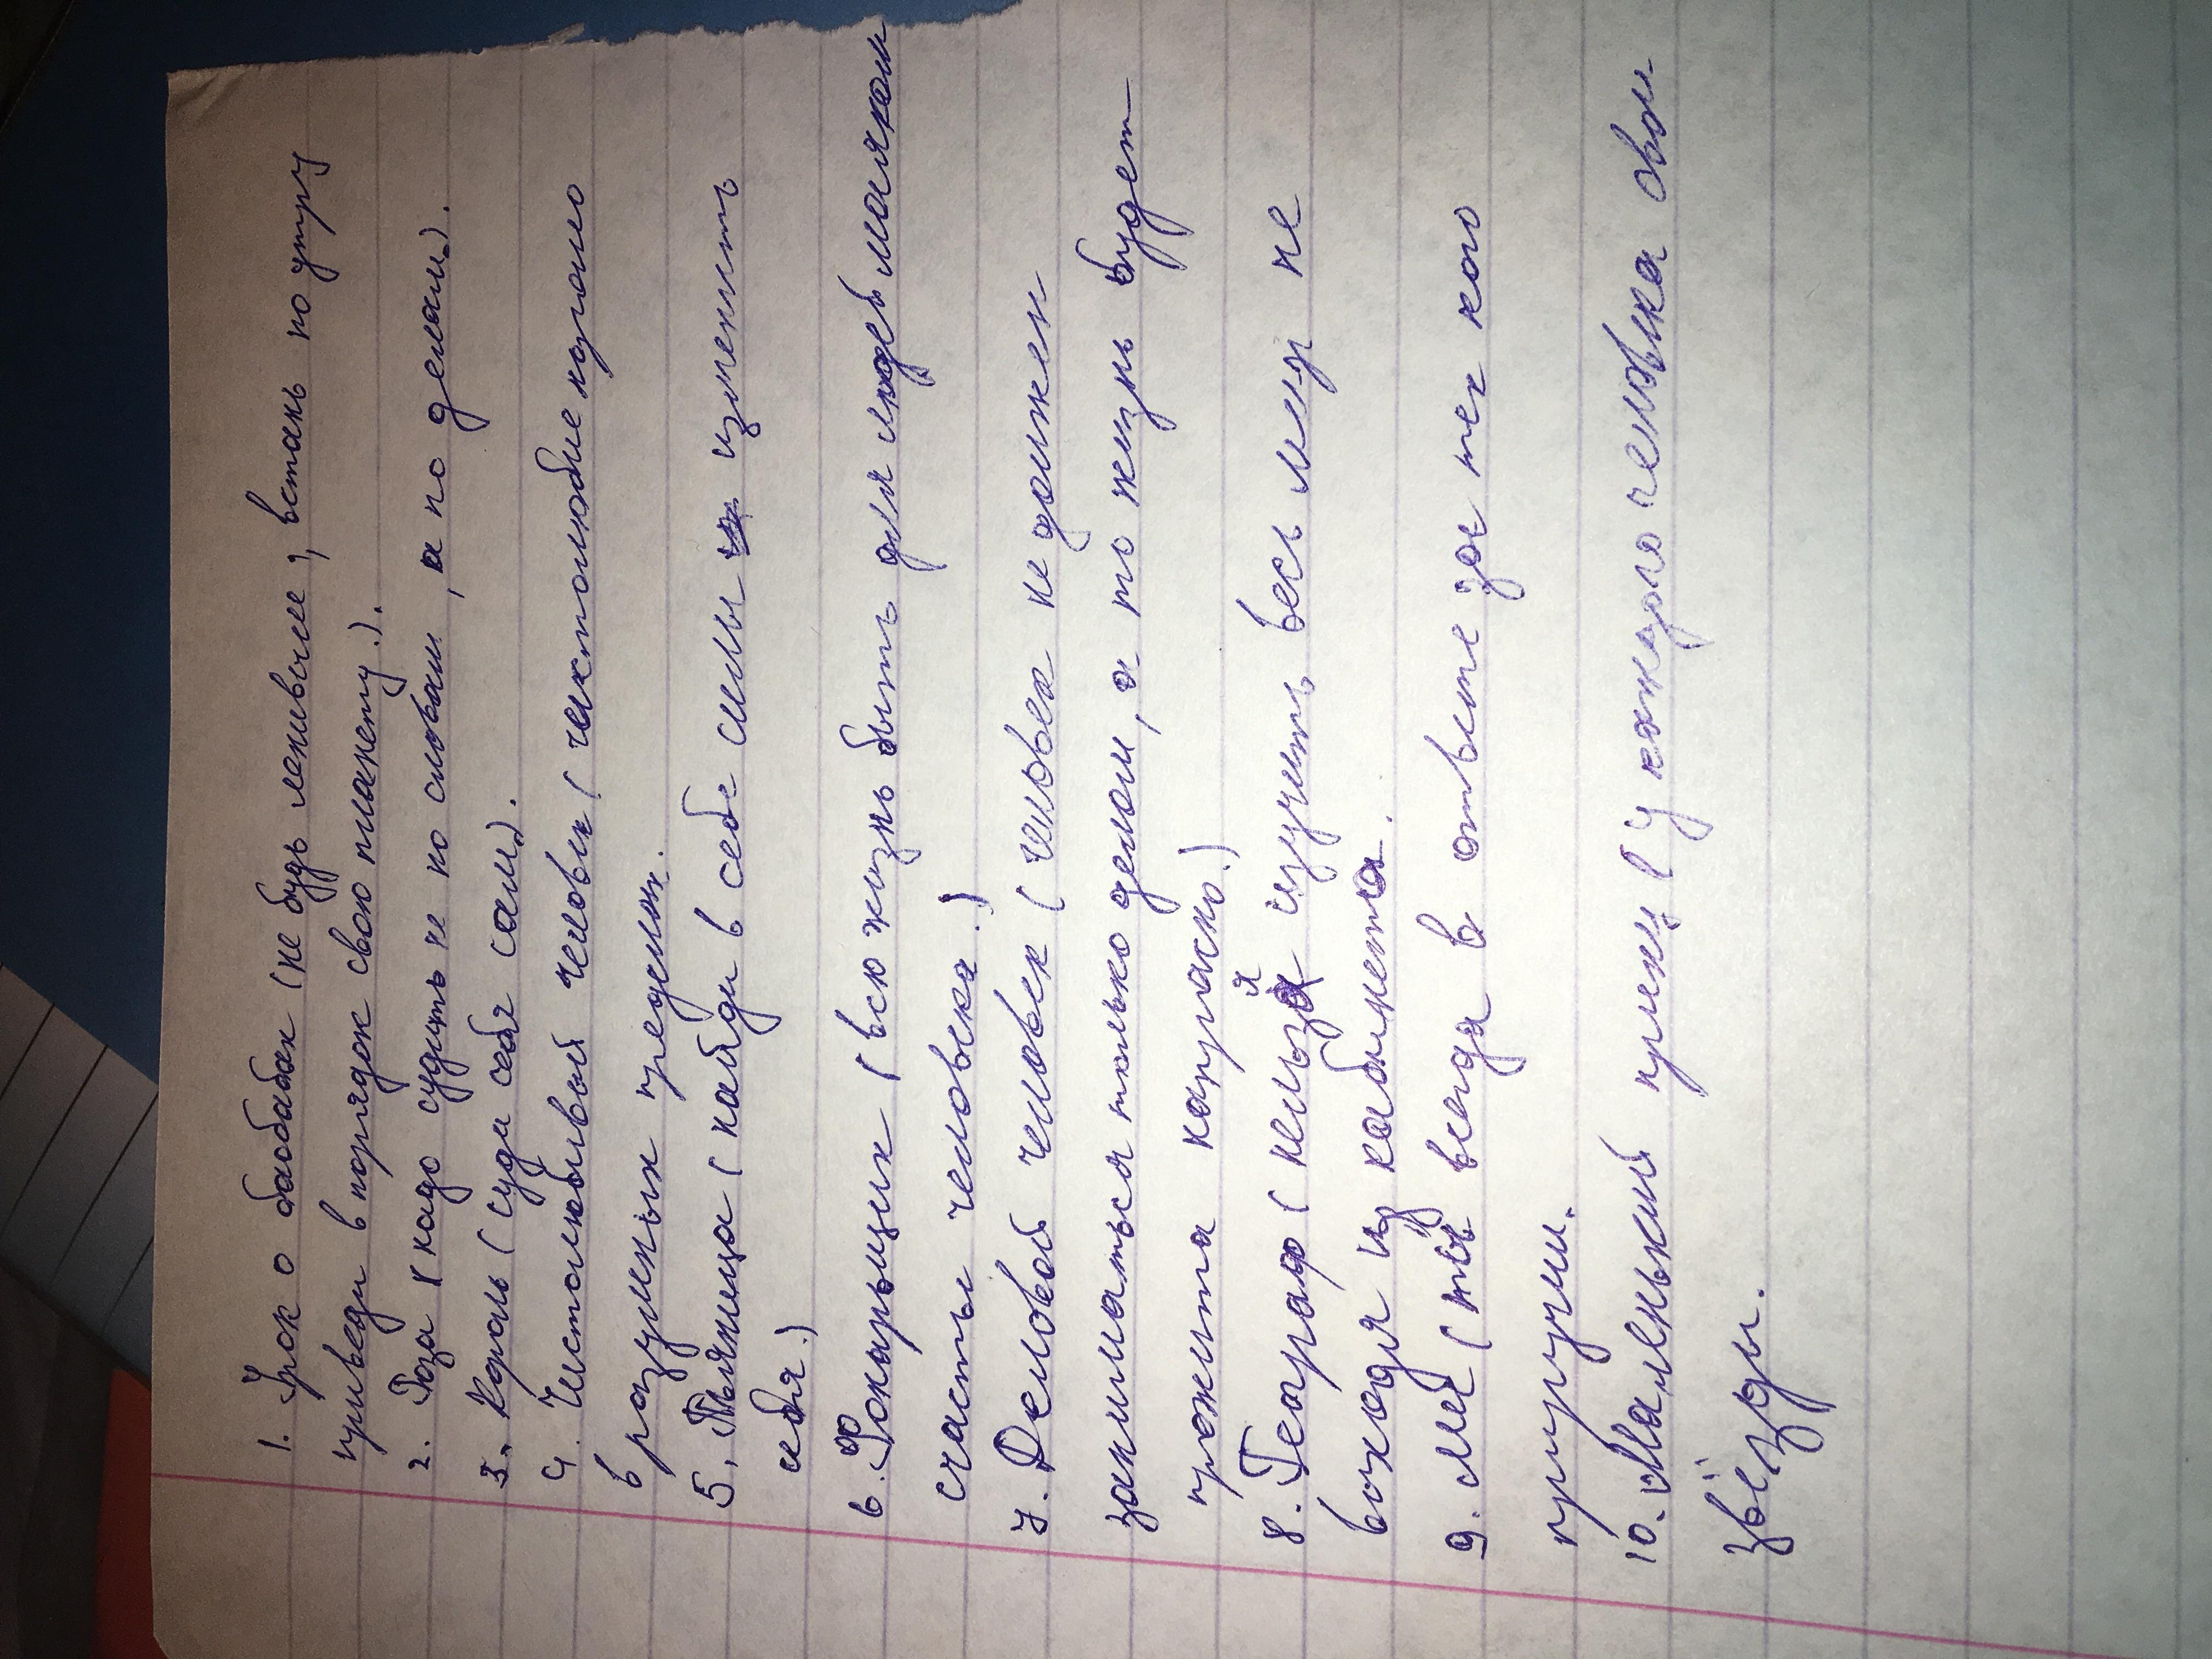 1. Урок о баобабах (не будь ленивые, встань по утру
приведи в порядок свою планету.).
2. Роза (надо судить не по словам, а по делам).
3. Король (суди себя сам).
4. Честолюбивый человек (честолюбие хорошо
в разумных пределах.
5. Пьяница (найди в себе силы изменить
себя.)
6. Фонарьщик (всю жизнь быть для людей маяком
счастье человека.)
7. Деловой человек (человек не должен
заниматься только делом, а то жизнь будет
прожита напрасно.)
8. Географ (нельзя изучить весь мир не
выходя из кабинета.
9. Лис (ты всегда в ответе за тех кого
приручи.
10. Маленький принц (у каждого человека свои
звёзды.